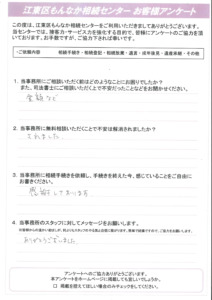 江東区もんなか相続センター お客様アンケート
この度は、江東区もんなか相続センターをご利用いただきましてありがとうございます。
当センターでは、接客力・サービス力を強化する目的で、皆様にアンケートのご協力を頂いております。お手数ですが、ご協力下されば幸いです。
ご依頼内容
相続手続き・相続登記・相続放棄・遺言・成年後見・遺産承継・その他
1. 当事務所にご相談いただく前はどのようなことにお困りでしたか？
また、司法書士にご相談いただく上で不安だったことなどをお聞かせください。
金額など
2. 当事務所に無料相談いただくことで不安は解消されましたか？
されました
3. 当事務所に相続手続きを依頼し、手続きを終えた今、感じていることをご自由にお書きください。
感謝しております
4. 当事務所のスタッフに対してメッセージをお願いします。
ありがとうございました
アンケートへのご協力ありがとうございます。
本アンケートをホームページに掲載しても宜しいでしょうか。
□ 掲載を控えてほしい場合のみチェックをしてください。